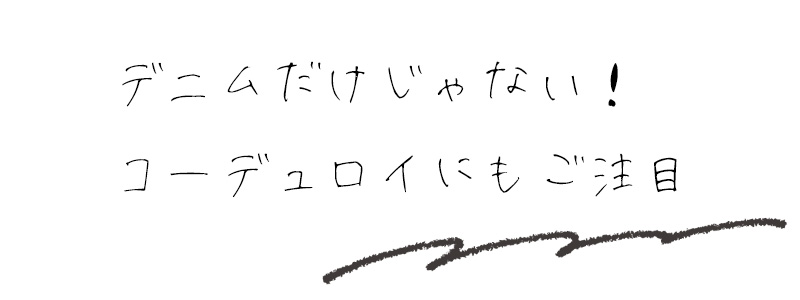 デニムだけじゃない！
コーデュロイにもご注目